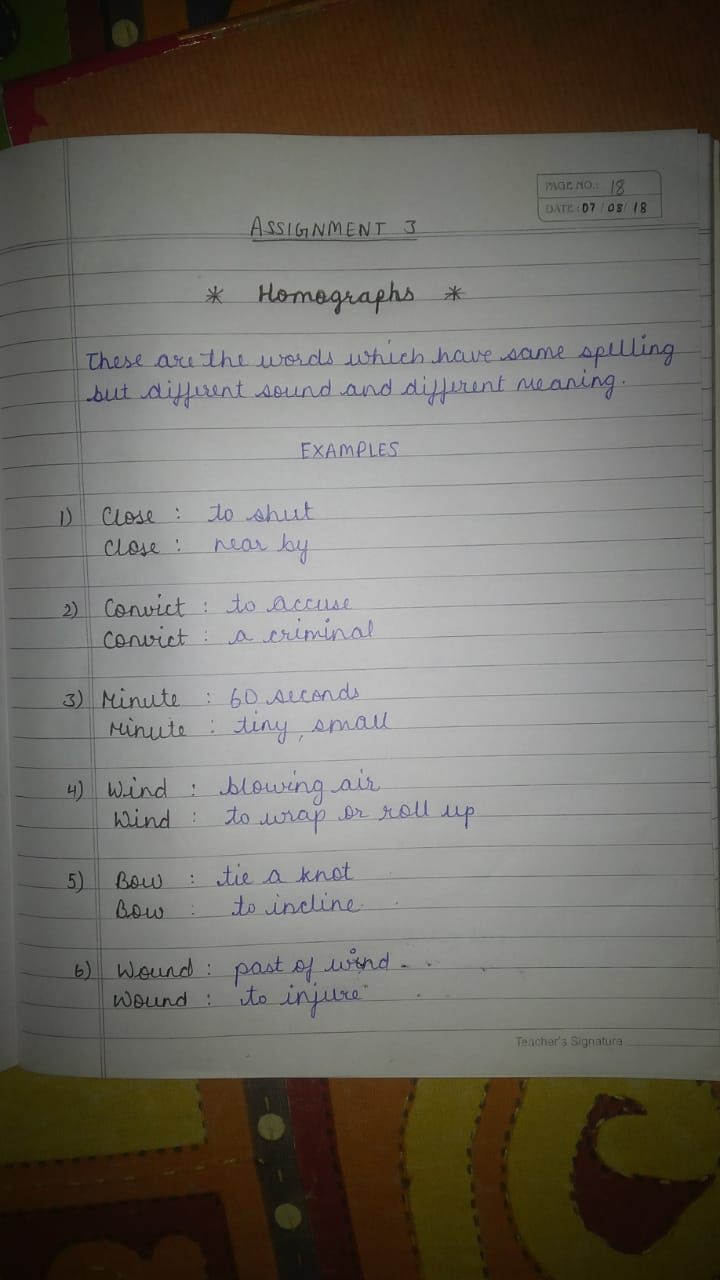 PAGE NO.: 18
DATE: 07/08/18
ASSIGNMENT 3
* Homographs *
These are the words which have same spelling
but different sound and different meaning.
EXAMPLES
1) Close : to shut
Close : near by
2) Convict : to accuse
Convict : a criminal
3) Minute : 60 seconds
Minute : tiny, small
4) Wind : blowing air
Wind : to wrap or roll up
5) Bow : tie a knot
Bow : to incline.
6) Wound : past of wind
Wound : to injure
Teacher's Signature